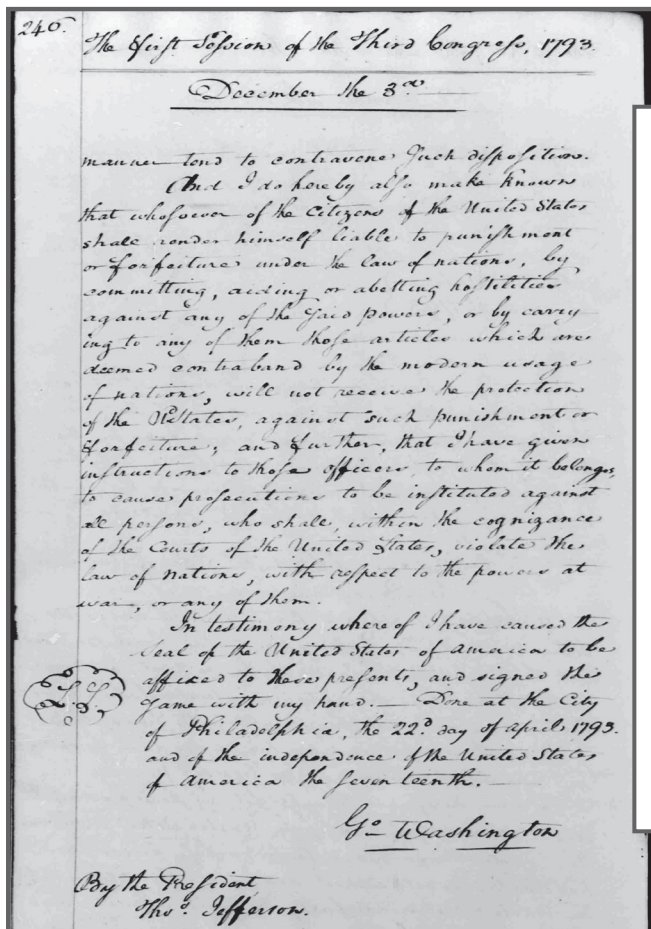 246.
The first Session of the Third Congress, 1793.
December the 3d
manner tend to contravene such disposition.
And I do hereby also make known
that whosoever of the Citizens of the United States
shall render himself liable to punishment
or forfeiture under the law of nations, by
committing, aiding or abetting hostilities
against any of the said powers, or by carry
ing to any of them those articles which are
deemed contraband by the modern usage
of nations, will not receive the protection
of the UStates, against such punishment or
forfeiture; and further, that I have given
instructions to those officers, to whom it belongs,
to cause prosecutions to be instituted against
all persons, who shall, within the cognizance
of the Courts of the United States, violate the
law of nations, with respect to the powers at
war, or any of them.
In testimony whereof I have caused the
seal of the United States of america to be
affixed to these presents, and signed the
same with my hand. — Done at the City
of Philadelphia, the 22d day of april 1793.
and of the independence of the United States
of america the seventeenth. —
Go Washington
By the President
Thos. Jefferson.